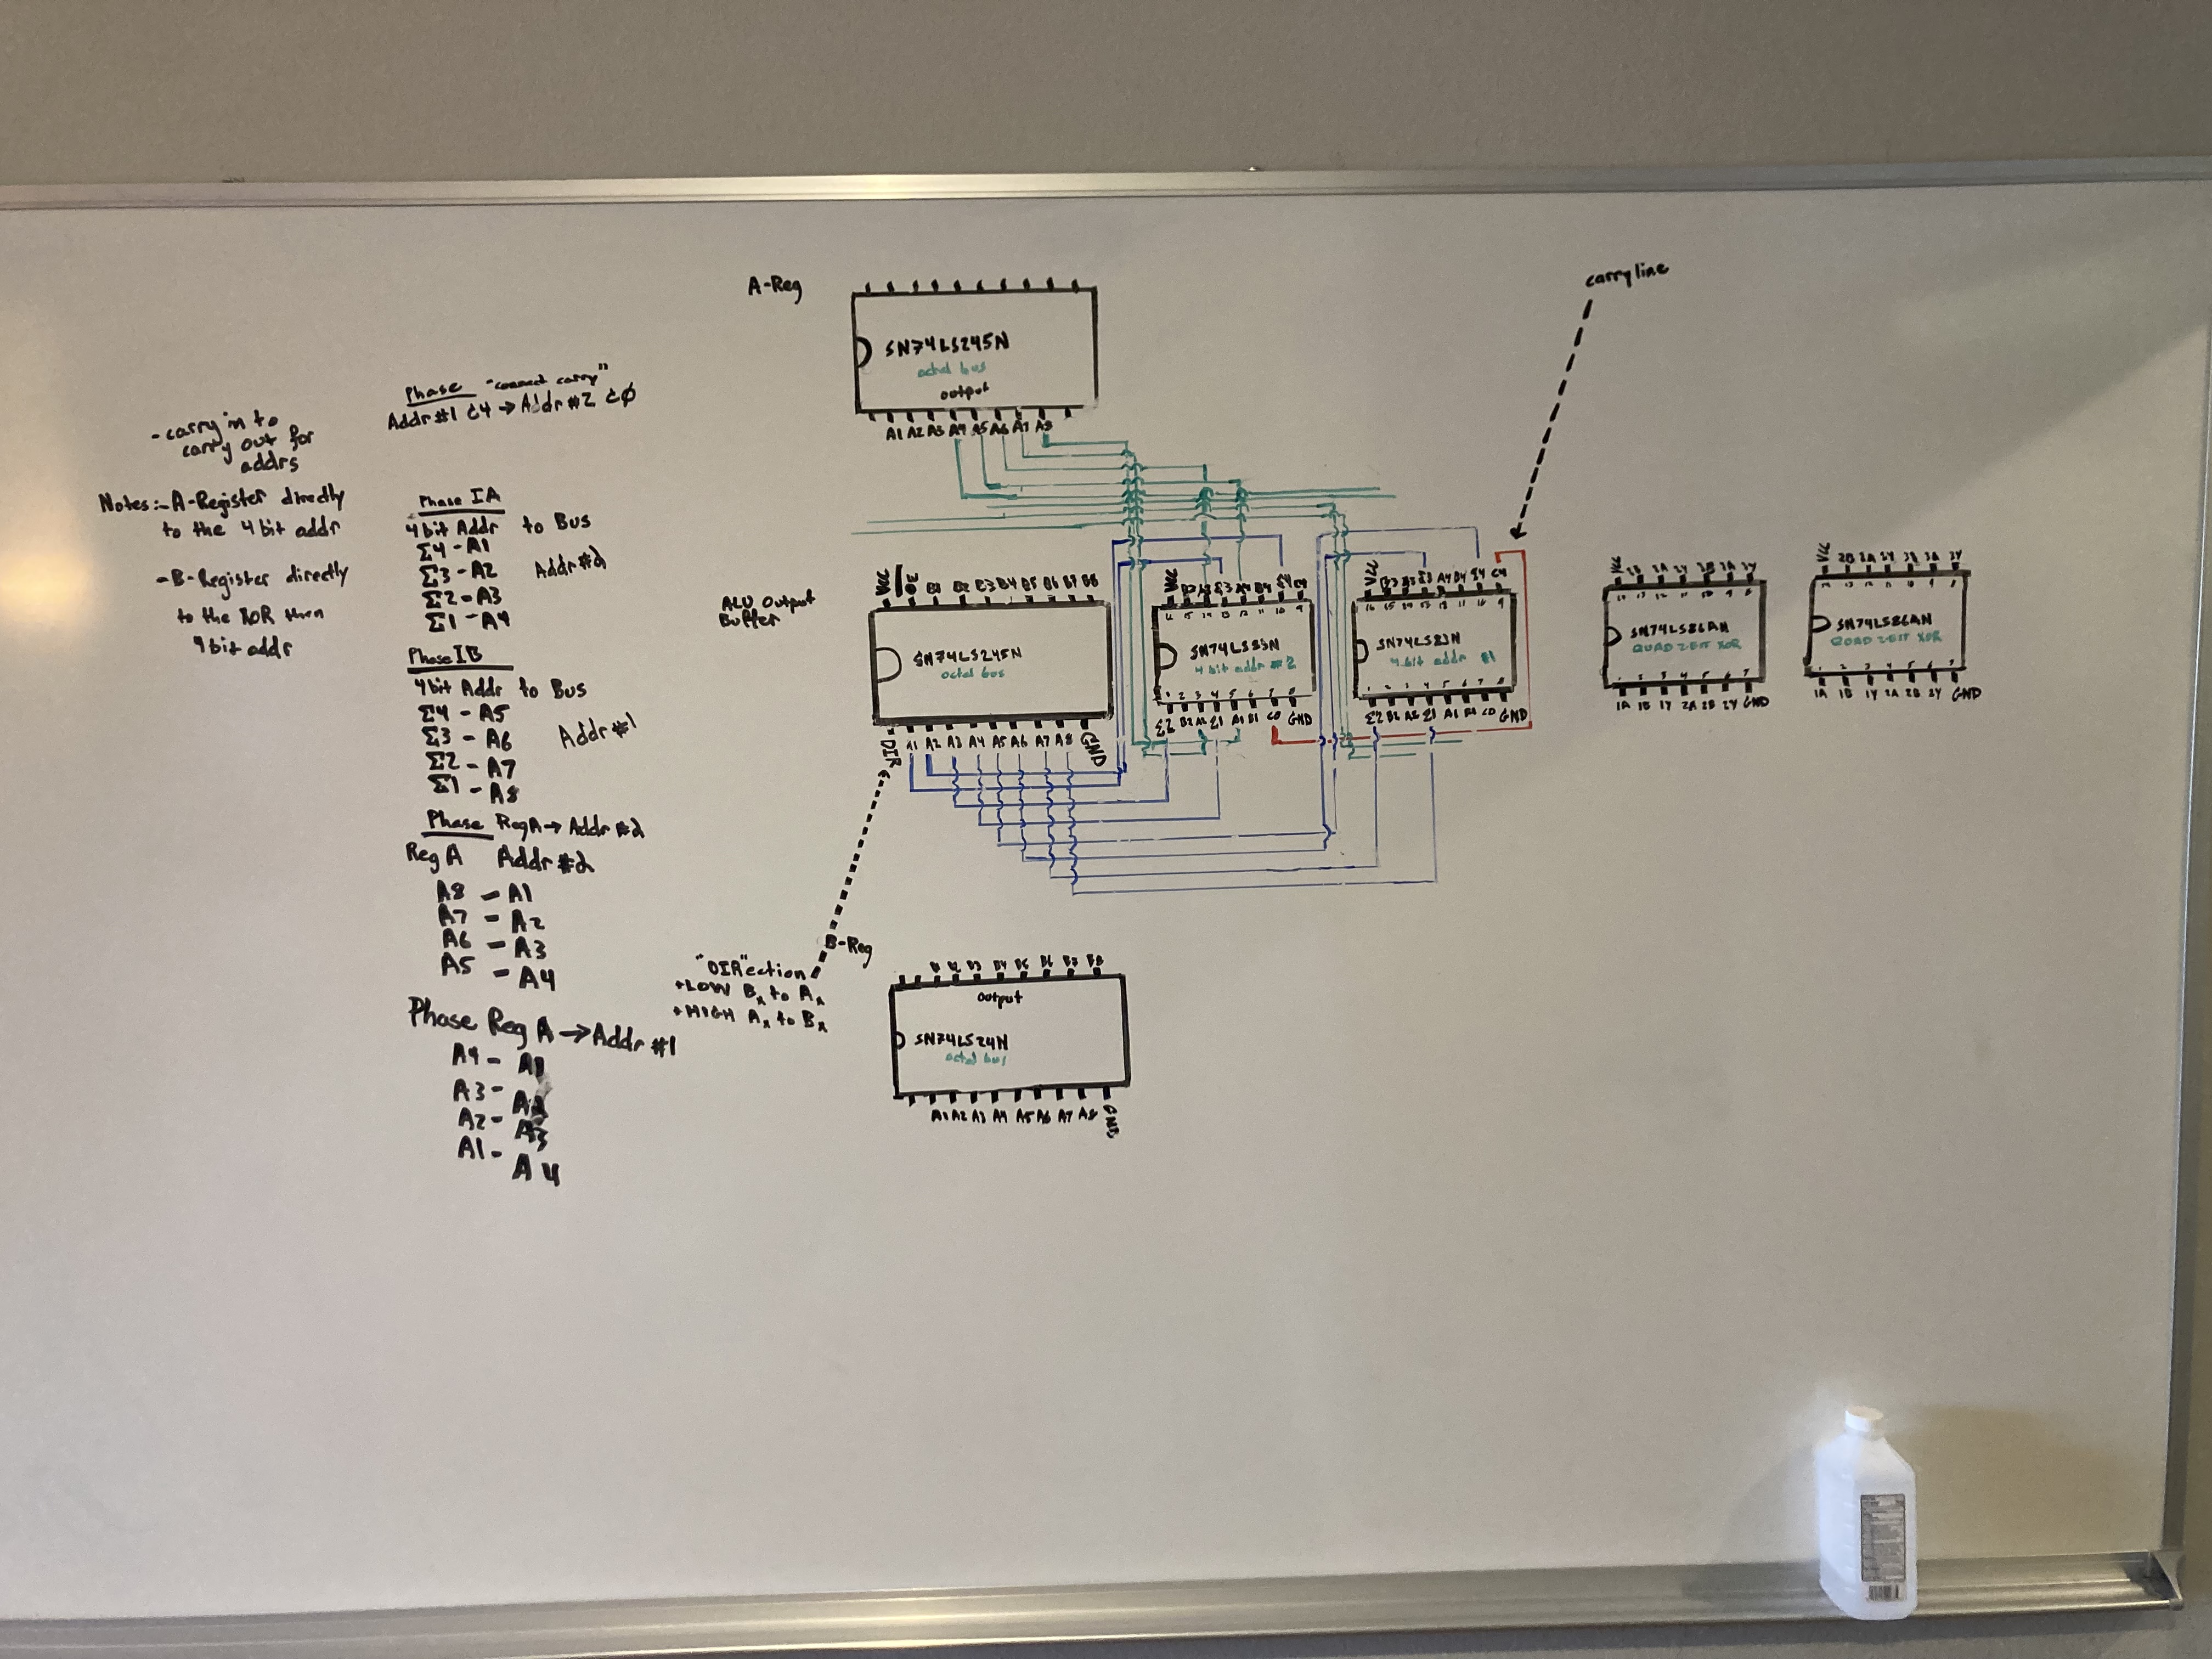 - carry in to
carry out for
addrs
Notes:- A-Register directly
to the 4 bit addr
- B-Register directly
to the XOR then
4 bit addr
Phase "connect carry"
Addr #1 C4 → Addr #2 C0
Phase IA
4 bit Addr to Bus
Σ4 - A1
Σ3 - A2 Addr #2
Σ2 - A3
Σ1 - A4
Phase IB
4 bit Addr to Bus
Σ4 - A5
Σ3 - A6 Addr #1
Σ2 - A7
Σ1 - A8
Phase Reg A → Addr #2
Reg A Addr #2
A8 - A1
A7 - A2
A6 - A3
A5 - A4
Phase Reg A → Addr #1
A4 - A1
A3 - A2
A2 - A3
A1 - A4
A-Reg
SN74LS245N
octal bus
output
A1 A2 A3 A4 A5 A6 A7 A8
carry line
ALU Output
Buffer
B1 B2 B3 B4 B5 B6 B7 B8
SN74LS245N
octal bus
DIR A1 A2 A3 A4 A5 A6 A7 A8 GND
16 15 14 13 12 11 10 9
SN74LS83N
4 bit addr #2
1 2 3 4 5 6 7 8
Σ2 B2 A2 Σ1 A1 B1 C0 GND
C4
SN74LS83N
4 bit addr #1
Σ2 B2 A2 Σ1 A1 B1 C0 GND
SN74LS86AN
QUAD 2 BIT XOR
1A 1B 1Y 2A 2B 2Y GND
SN74LS86AN
QUAD 2 BIT XOR
1A 1B 1Y 2A 2B 2Y GND
"DIR"ection
•LOW Bx to Ax
•HIGH Ax to Bx
B-Reg
B1 B2 B3 B4 B5 B6 B7 B8
output
SN74LS24N
octal bus
A1 A2 A3 A4 A5 A6 A7 A8 GND